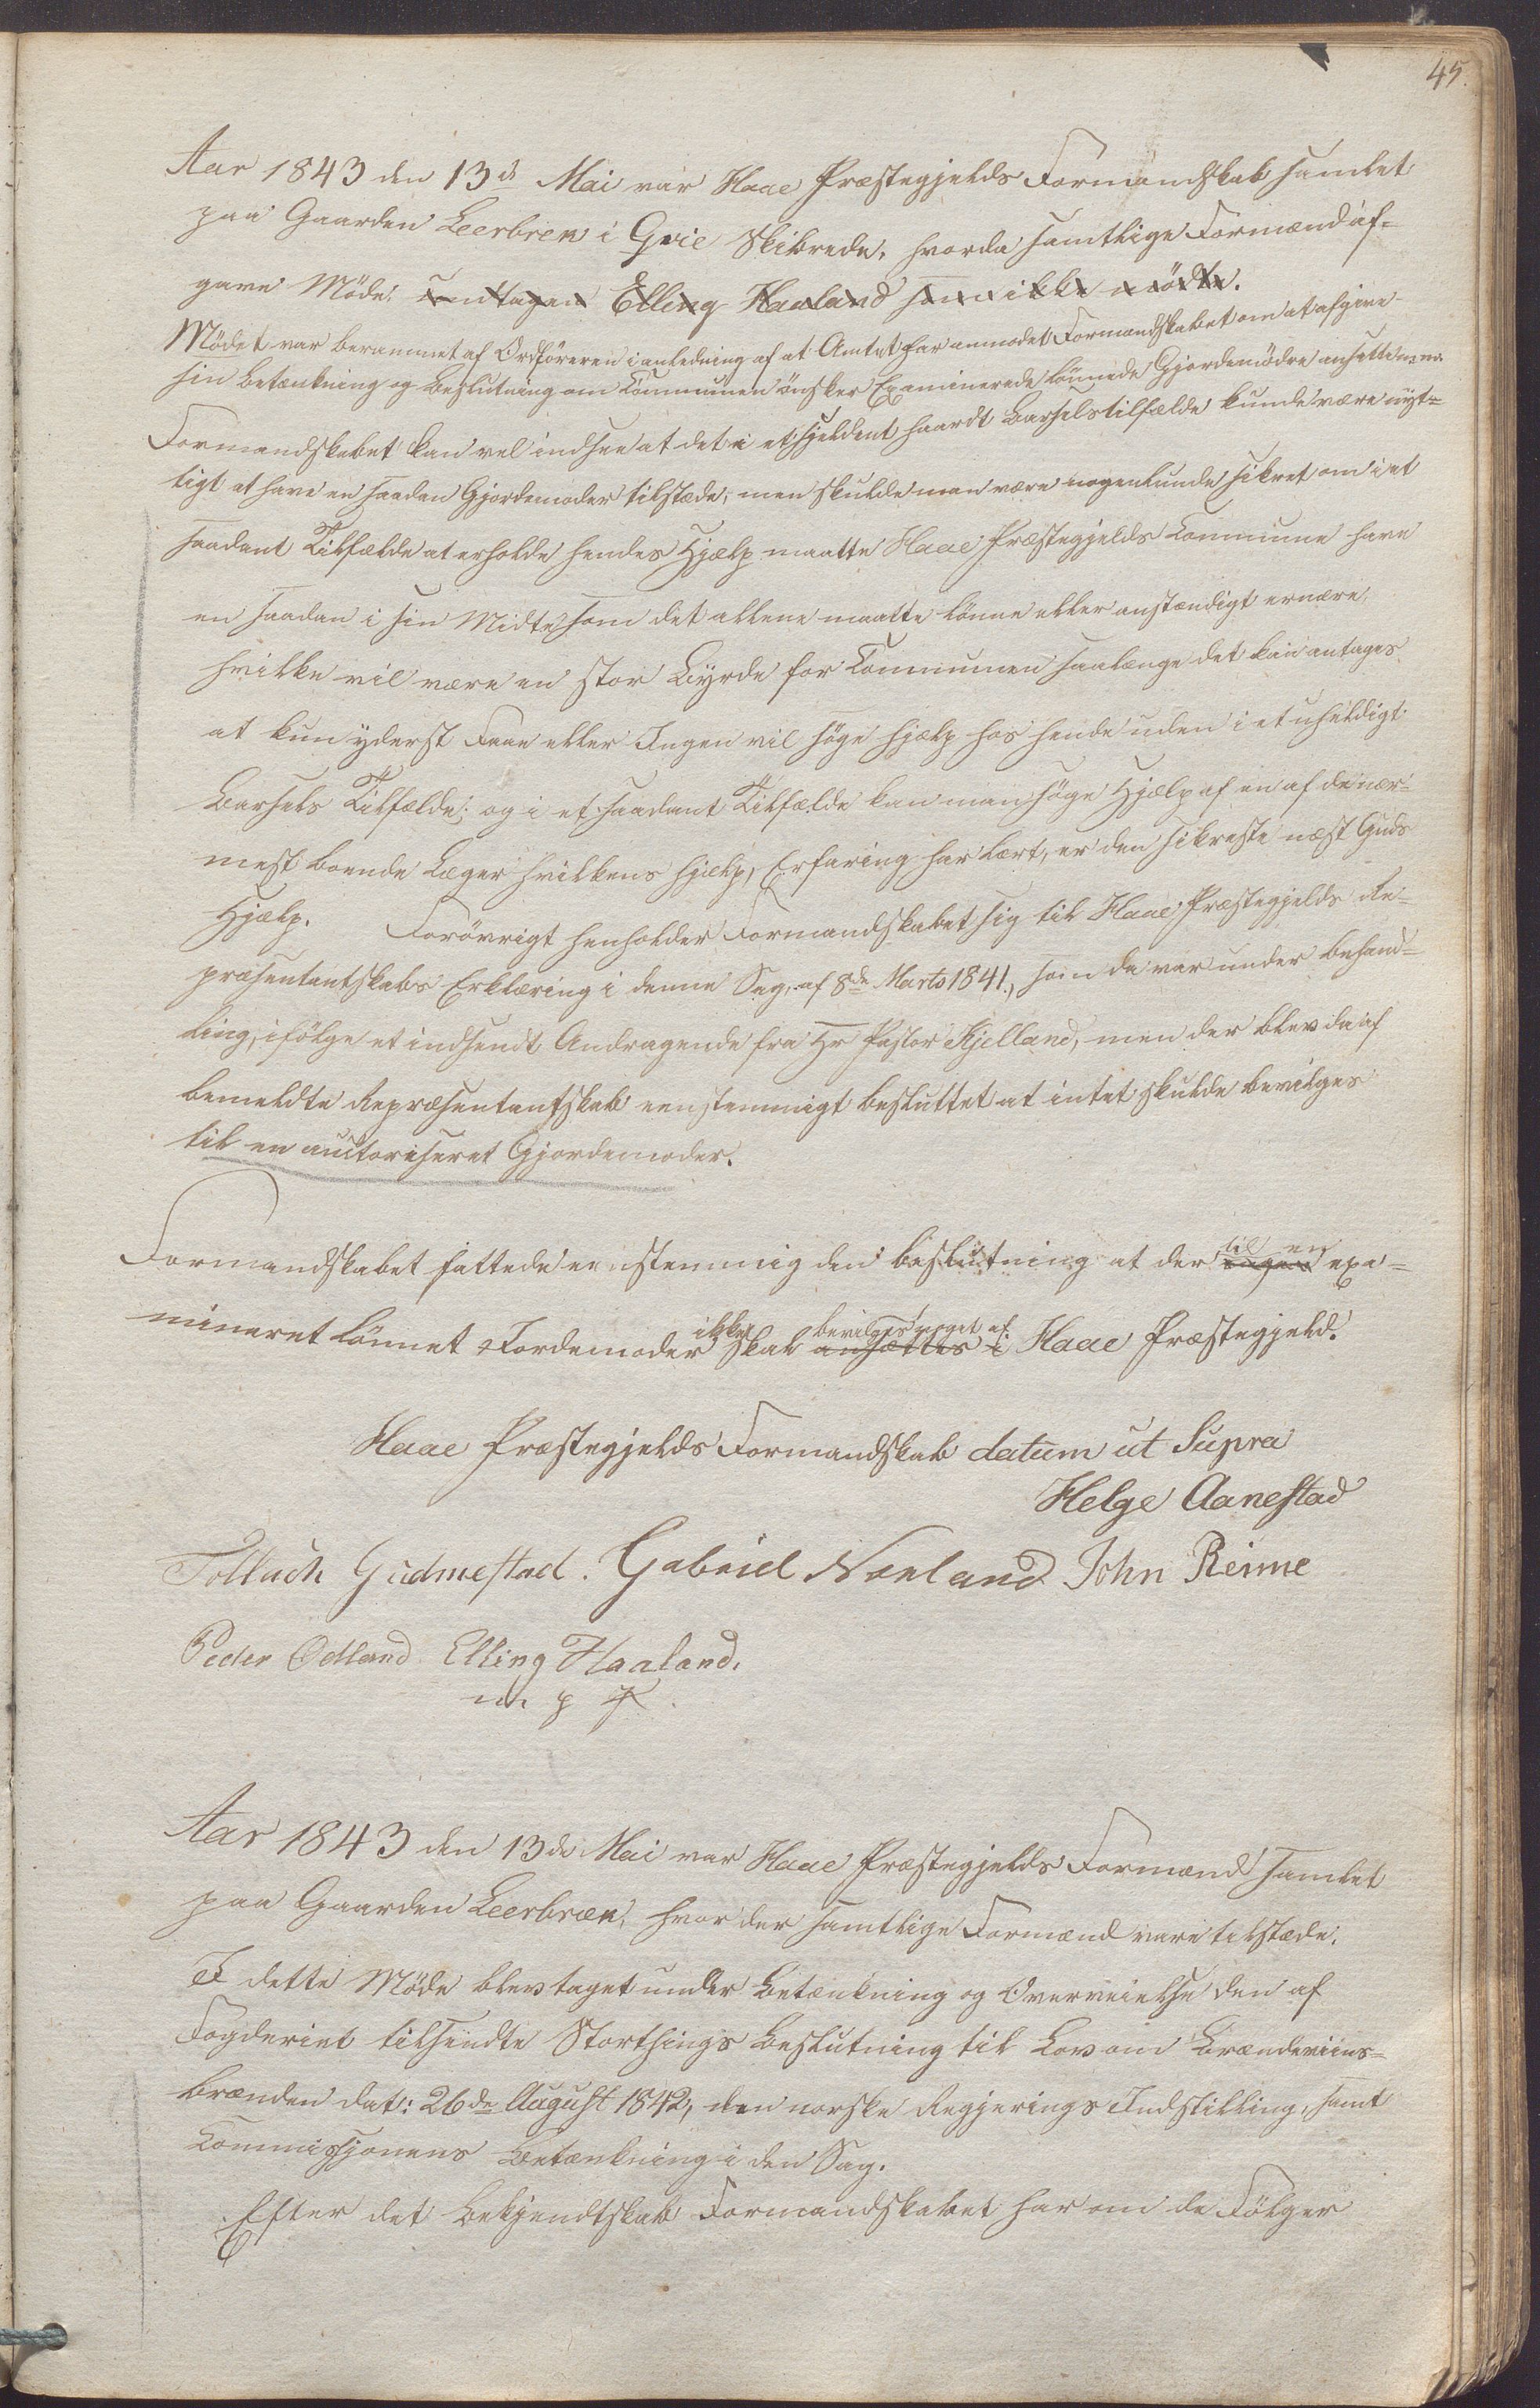 45.
Aar 1843 den 13de Mai var Haae Præstegjelds Formandskab samlet
paa Gaarden Leerbren i Grie Skibrede, hvorda samtlige Formænd af-
gave Møde. undtagen Elling Haaland som ikke mödte.
Mödet var berammet af Ordföreren i anledning af at Amtet har anmodet Formandskabet om at afgive
sin betænkning og beslutning om Communen önsker Examinerede lönnede Gjordemödre ansatte m.m.
Formandskabet kan vel indsee at det i et sjeldent haardt Barselstilfælde kunde være nyt-
tigt at have en saadan Gjordemoder tilstæde; men skulde man være nogenlunde sikret om i et
saadant Tilfælde at erholde hendes Hjælp maatte Haae Præstegjelds Commune have
en saadan i sin Midte som det allene maatte lönne eller anstændigt ernære,
hvilke vil være en stor Byrde for Communen saalænge det kan antages
at kun yderst Faae eller Ingen vil söge hjælp hos hende uden i et uheldigt
Barsels Tilfælde; og i et saadant Tilfælde kan man söge Hjælp af en af de nær-
mest boende Læger hvilkens hjælp, Erfaring har lært, er den sikreste næst Guds
Hjælp. Forövrigt henholder Formandskabet sig til Haae Præstegjelds Re-
præsentantskabs Erklæring i denne Sag, af 8de Marts 1841, som da var under behand-
ling, ifölge et indsendt Andragende fra Hr Pastor Kjelland, men der blev da af
bemeldte Repræsentantskab eenstemmigt besluttet at intet skulde bevilges
til en auctoriseret Gjordemoder.
Formandskabet fattede eenstemmig den beslutning at der ingen til en exa-
mineret lönnet Jordemoder ikke skal ansættes i bevilges noget af Haae Præstegjeld.
Haae Præstegjelds Formandskab datum ut Supra
Helge Aanestad
Tollach Gudmestad. Gabriel Nærland John Reime
Peder Ödland Elling Haaland.
m p F.
Aar 1843 den 13de Mai var Haae Præstegjelds Formænd samlet
paa Gaarden Leerbræn, hvor der samtlige Formænd vare tilstæde.
I dette Möde blev taget under Betænkning og Overveielse den af
Fogderiet tilsendte Storthings Beslutning til Lov om Brændeviins-
brænden dat: 26de August 1842, den norske Regjerings Indstilling, samt
Commissjonens Betænkning i den Sag.
Efter det Bekjendtskab Formandskabet har om de Fölger